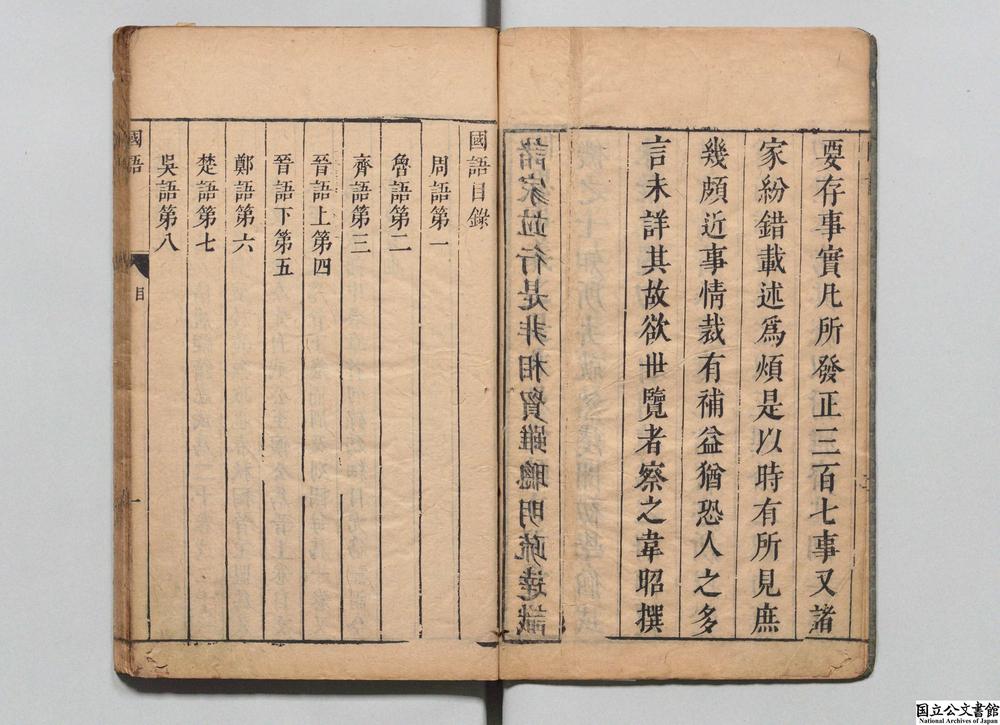 要存事實凡所發正三百七事又諸
家紛錯載述爲煩是以時有所見庶
幾頗近事情裁有補益猶恐人之多
言未詳其故欲世覽者察之韋昭撰
諸家並行是非相貿雖聰明疏達識
國語目錄
周語第一
魯語第二
齊語第三
晉語上第四
晉語下第五
鄭語第六
楚語第七
吳語第八
國語 目 一
国立公文書館
National Archives of Japan